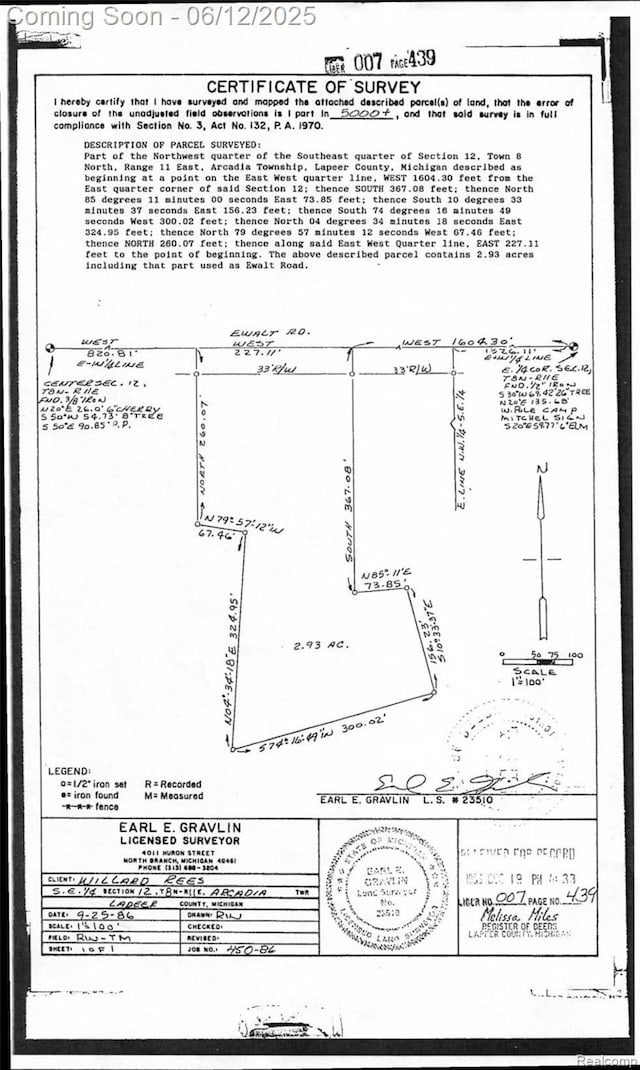 Coming Soon - 06/12/2025
LIBER 007 PAGE 439
CERTIFICATE OF SURVEY
I hereby certify that I have surveyed and mapped the attached described parcel(s) of land, that the error of
closure of the unadjusted field observations is 1 part in 5000+, and that said survey is in full
compliance with Section No. 3, Act No. 132, P. A. 1970.
DESCRIPTION OF PARCEL SURVEYED:
Part of the Northwest quarter of the Southeast quarter of Section 12, Town 8
North, Range 11 East, Arcadia Township, Lapeer County, Michigan described as
beginning at a point on the East West quarter line, WEST 1604.30 feet from the
East quarter corner of said Section 12; thence SOUTH 367.08 feet; thence North
85 degrees 11 minutes 00 seconds East 73.85 feet; thence South 10 degrees 33
minutes 37 seconds East 156.23 feet; thence South 74 degrees 16 minutes 49
seconds West 300.02 feet; thence North 04 degrees 34 minutes 18 seconds East
324.95 feet; thence North 79 degrees 57 minutes 12 seconds West 67.46 feet;
thence NORTH 260.07 feet; thence along said East West Quarter line, EAST 227.11
feet to the point of beginning. The above described parcel contains 2.93 acres
including that part used as Ewalt Road.
EWALT RD.
WEST WEST WEST 1604.30'
820.81' 227.11' 1326.11'
E-W 1/4 LINE E-W 1/4 LINE
33' R/W 33' R/W
CENTER SEC. 12,
T8N-R11E
FND. 3/8" IRON
N20°E 26.0' 6" CHERRY
S50°W 54.73' 8" TREE
S50°E 90.85' P.P.
E. 1/4 COR. SEC. 12,
T8N-R11E
FND. 1/2" IRON
S30°W 69.42' 26" TREE
N20°E 135.68'
W. POLE CAMP
MITCHEL SIGN
S20°E 59.77' 6" ELM
NORTH 260.07'
SOUTH 367.08'
E. LINE N.W. 1/4-S.E. 1/4
N
N79°-57'-12"W
67.46'
N85°-11'E
73.85'
156.23'
S10°33'37"E
2.93 AC.
N04°-34'-18"E 324.95'
S74°-16'-49"W 300.02'
0 50 75 100
SCALE
1"=100'
LEGEND:
o=1/2" iron set R=Recorded
= iron found M=Measured
-x-x-x- fence
EARL E. GRAVLIN L. S. # 23510
EARL E. GRAVLIN
LICENSED SURVEYOR
4011 HURON STREET
NORTH BRANCH, MICHIGAN 48461
PHONE (313) 688-3204
CLIENT: WILLARD REES
S.E. 1/4 SECTION 12, T8N-R11E, ARCADIA TWP.
LAPEER COUNTY, MICHIGAN
DATE: 9-25-86 DRAWN: RIW
SCALE: 1"=100' CHECKED:
FIELD: RIW-TM REVISED:
SHEET: 1 OF 1 JOB NO.: 450-86
STATE OF MICHIGAN
EARL E.
GRAVLIN
Land Surveyor
No.
23510
LICENSED LAND SURVEYOR
RECEIVED FOR RECORD
DEC 19 PM 33
LIBER NO. 007 PAGE NO. 439
Melissa Miles
REGISTER OF DEEDS
LAPEER COUNTY, MICHIGAN
Realcomp